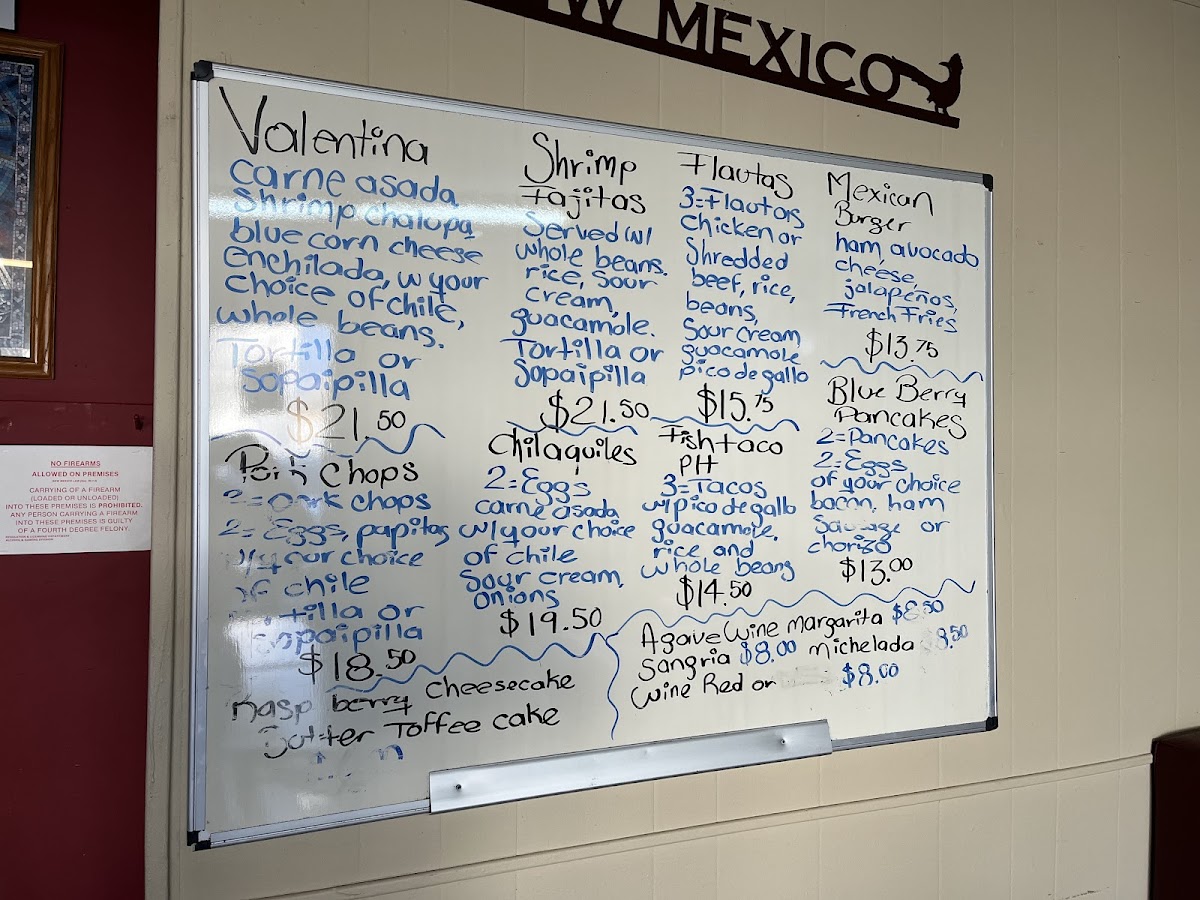 MEXICO
Valentina
Carne asada
Shrimp chalupa
blue corn cheese
enchilada, w your
choice of chile,
whole beans.
Tortilla or
Sopaipilla
$21.50
Shrimp
Fajitas
Served w/
whole beans.
rice, sour
cream,
guacamole.
Tortilla or
Sopaipilla
$21.50
Flautas
3=Flautas
Chicken or
Shredded
beef, rice,
beans,
Sour cream
guacamole
pico de gallo
$15.75
Mexican
Burger
ham, avocado
cheese,
jalapeños,
French Fries
$13.75
Pork Chops
2=Pork chops
2=Eggs, papitas
w/your choice
of chile
tortilla or
Sopaipilla
$18.50
Chilaquiles
2=Eggs
carne asada
w/your choice
of chile
Sour cream,
onions
$19.50
Fish taco
PH
3=Tacos
w/pico de gallo
guacamole.
rice and
whole beans
$14.50
Blue Berry
Pancakes
2=Pancakes
2=Eggs
of your choice
bacon, ham
Sausage or
chorizo
$13.00
Rasp berry Cheesecake
Butter Toffee cake
Agave Wine margarita $8.50
Sangria $8.00 michelada 8.50
Wine Red or $8.00
NO FIREARMS
ALLOWED ON PREMISES
CARRYING OF A FIREARM
(LOADED OR UNLOADED)
INTO THESE PREMISES IS PROHIBITED.
ANY PERSON CARRYING A FIREARM
INTO THESE PREMISES IS GUILTY
OF A FOURTH DEGREE FELONY.